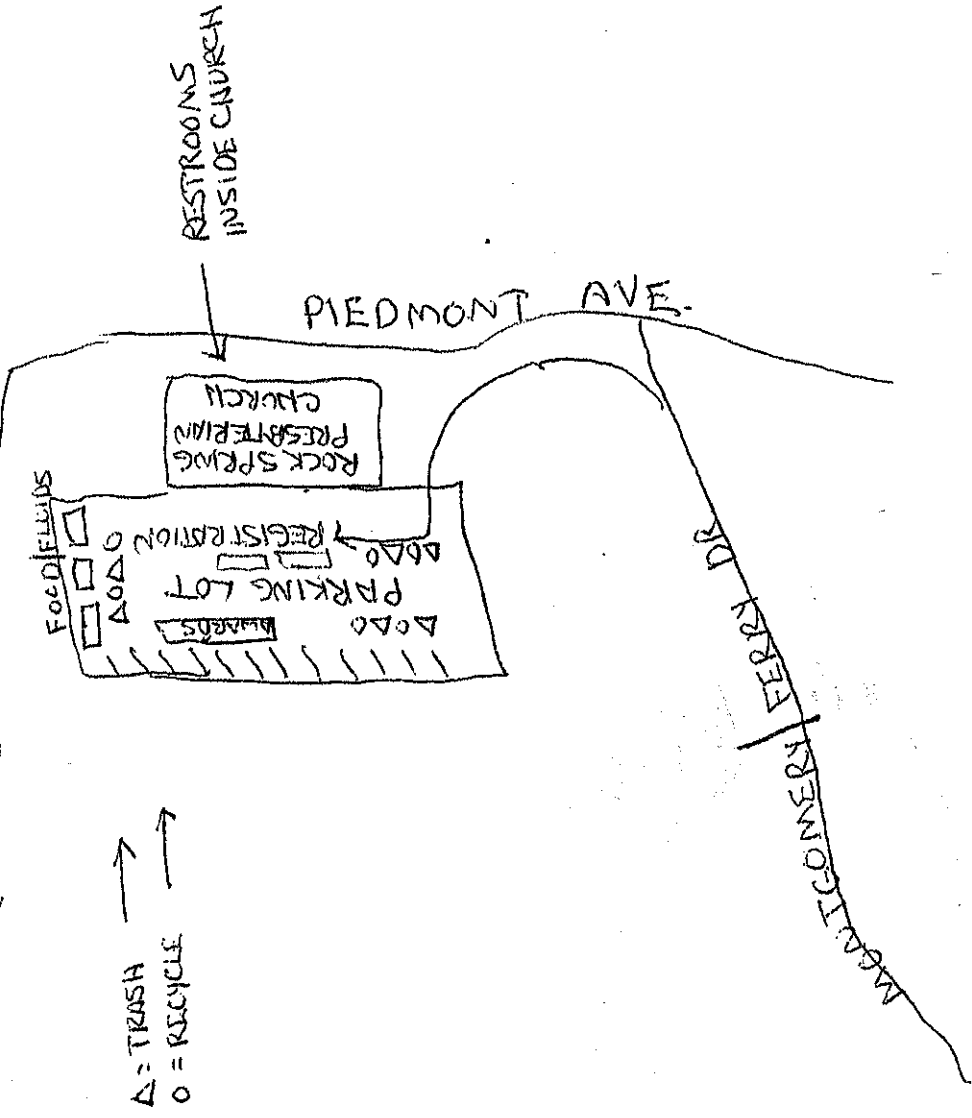 RESTROOMS
INSIDE CHURCH
PIEDMONT AVE.
ROCK SPRING
PRESBYTERIAN
CHURCH
FOOD/FLUIDS
△O△O
REGISTRATION
△O△O
PARKING LOT
AWARDS
△O△O
MONTGOMERY FERRY DR
△ = TRASH
O = RECYCLE